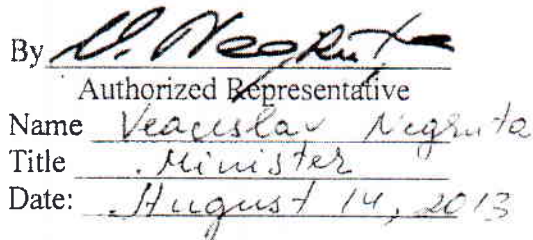 By V. Negruța
Authorized Representative
Name Veaceslav Negruta
Title Minister
Date: August 14, 2013